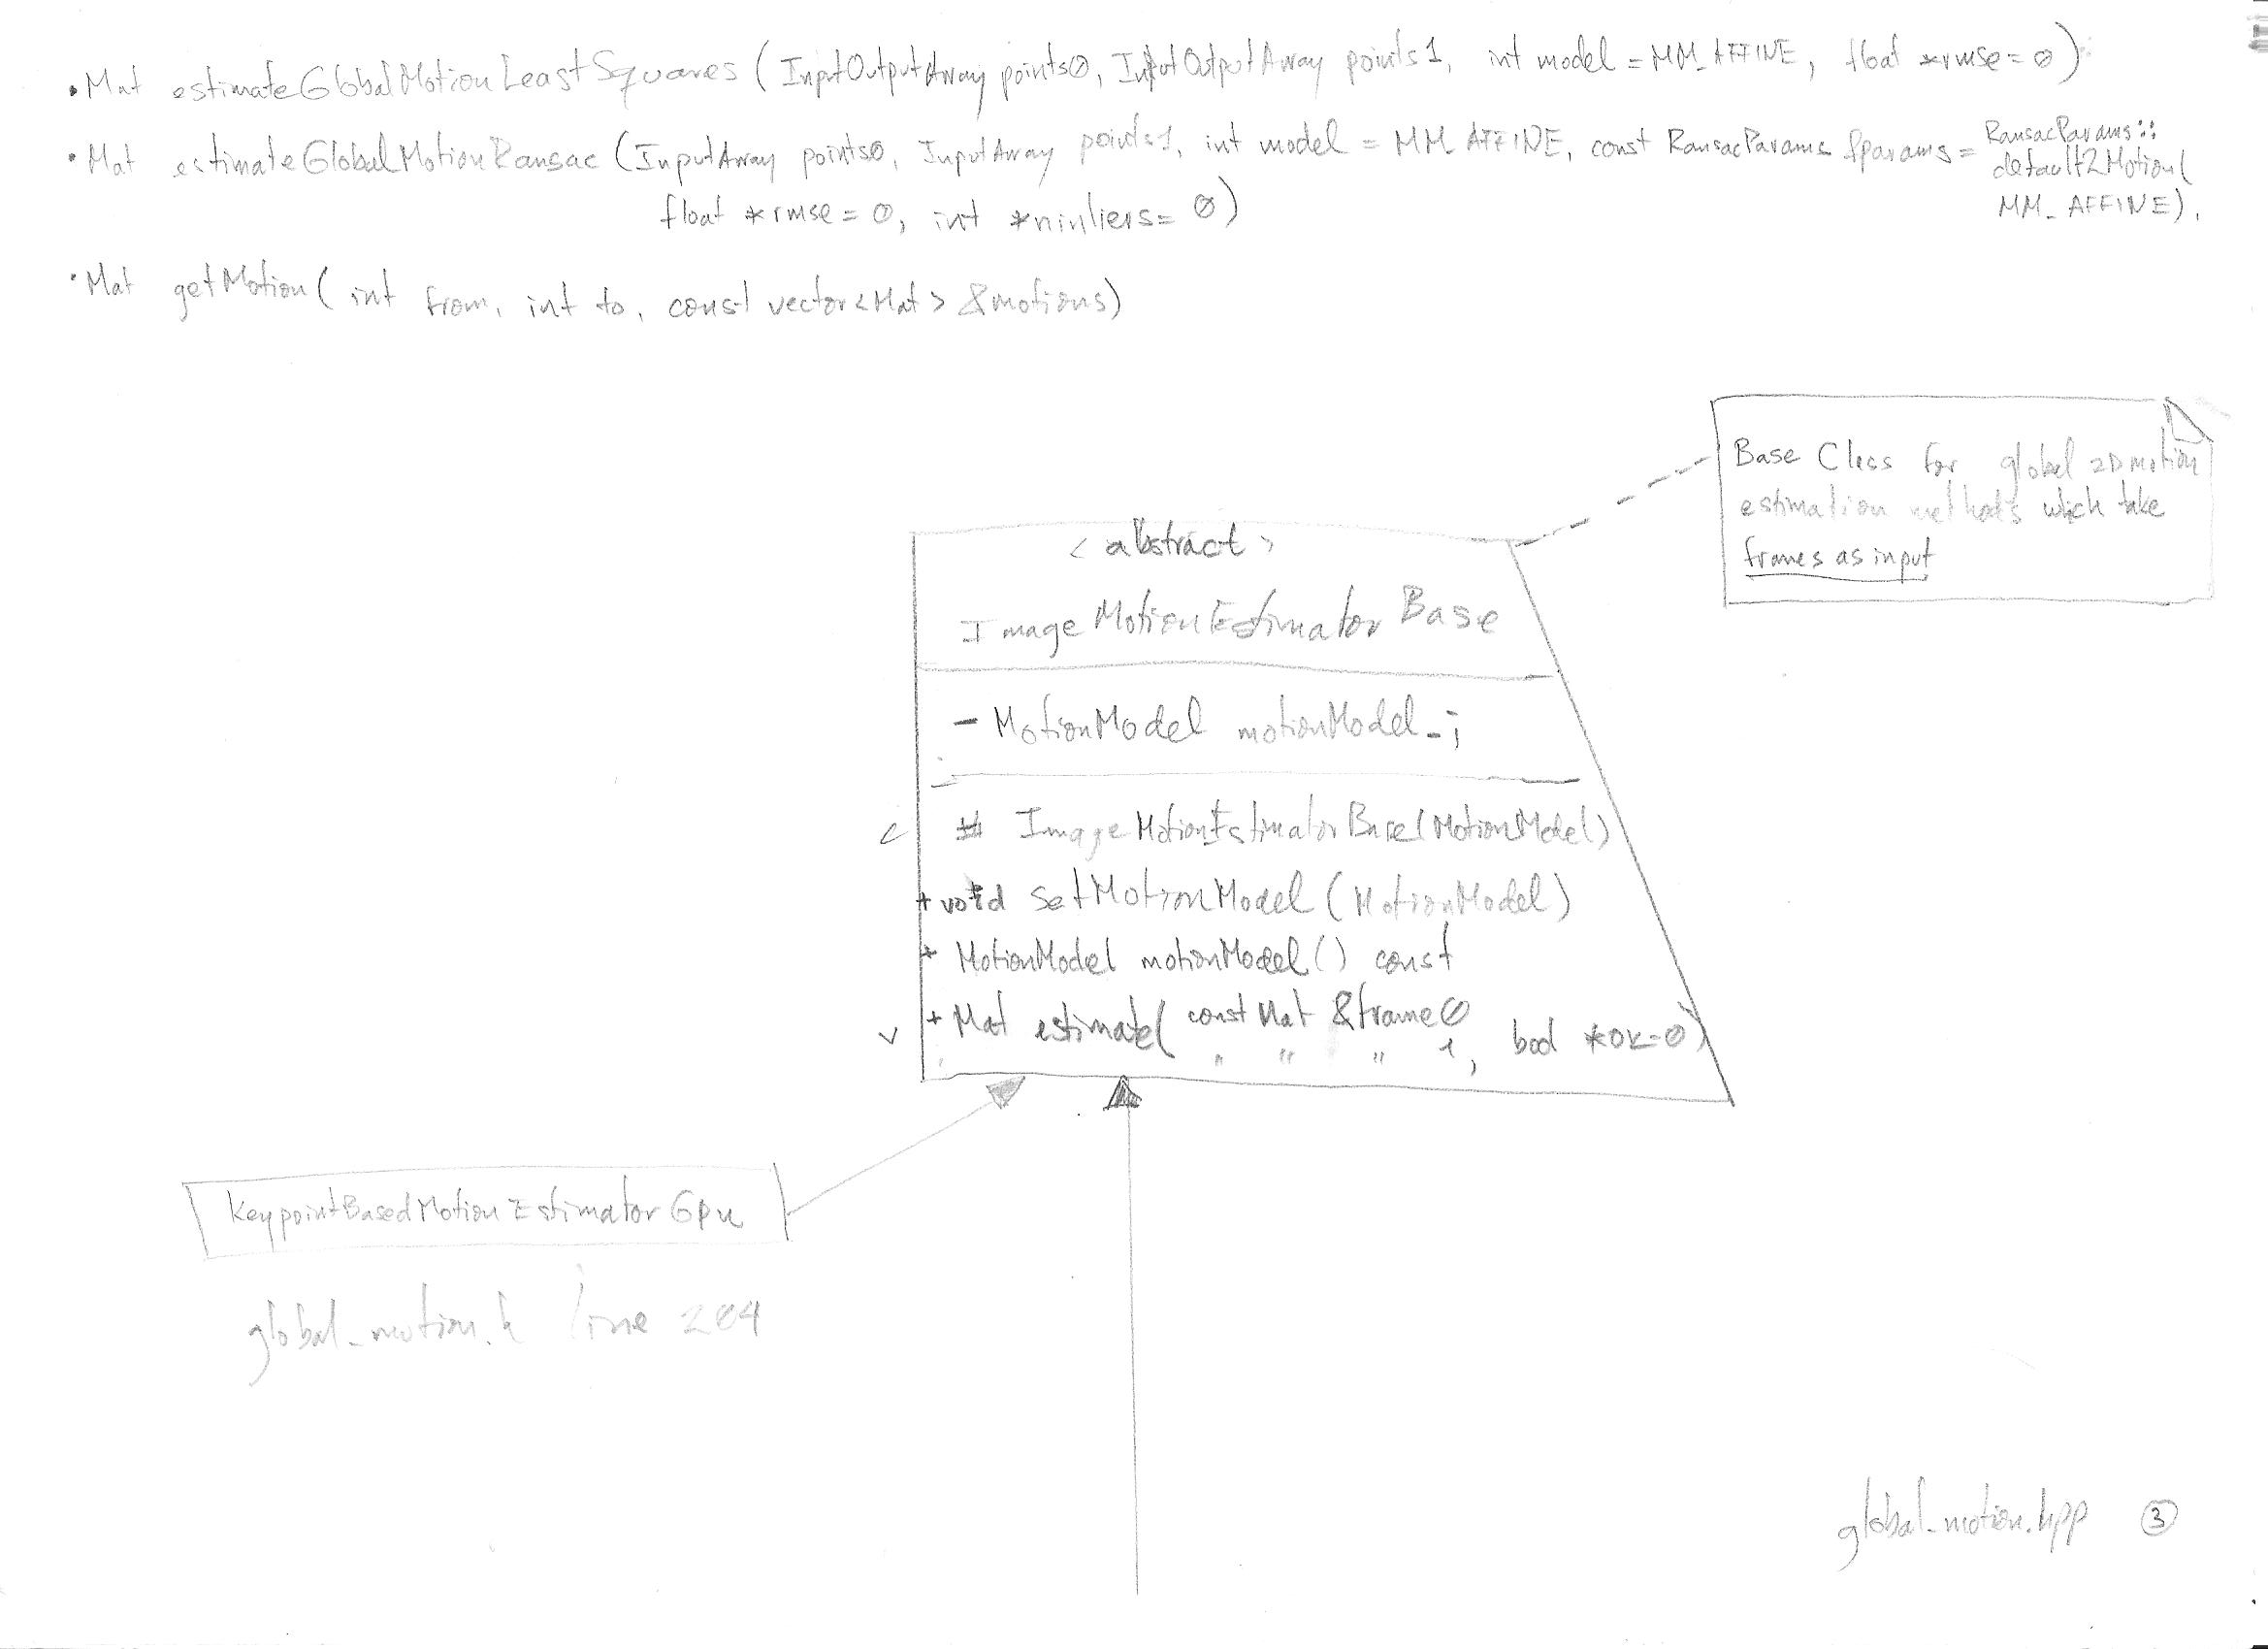 • Mat estimateGlobalMotionLeastSquares (InputOutputArray points0, InputOutputArray points1, int model = MM_AFFINE, float *rmse = 0)
• Mat estimateGlobalMotionRansac (InputArray points0, InputArray points1, int model = MM_AFFINE, const RansacParams &params = RansacParams::
default2Motion(
MM_AFFINE),
float *rmse = 0, int *ninliers = 0)
• Mat getMotion( int from, int to, const vector<Mat> &motions)
Base Class for global 2D motion
estimation methods which take
frames as input
< abstract >
ImageMotionEstimatorBase
- MotionModel motionModel_;
c # ImageMotionEstimatorBase(MotionModel)
+ void setMotionModel (MotionModel)
+ MotionModel motionModel() const
v + Mat estimate( const Mat &frame0
" " " 1, bool *ok=0)
KeypointBasedMotionEstimatorGpu
global_motion.h line 204
global_motion.hpp 3